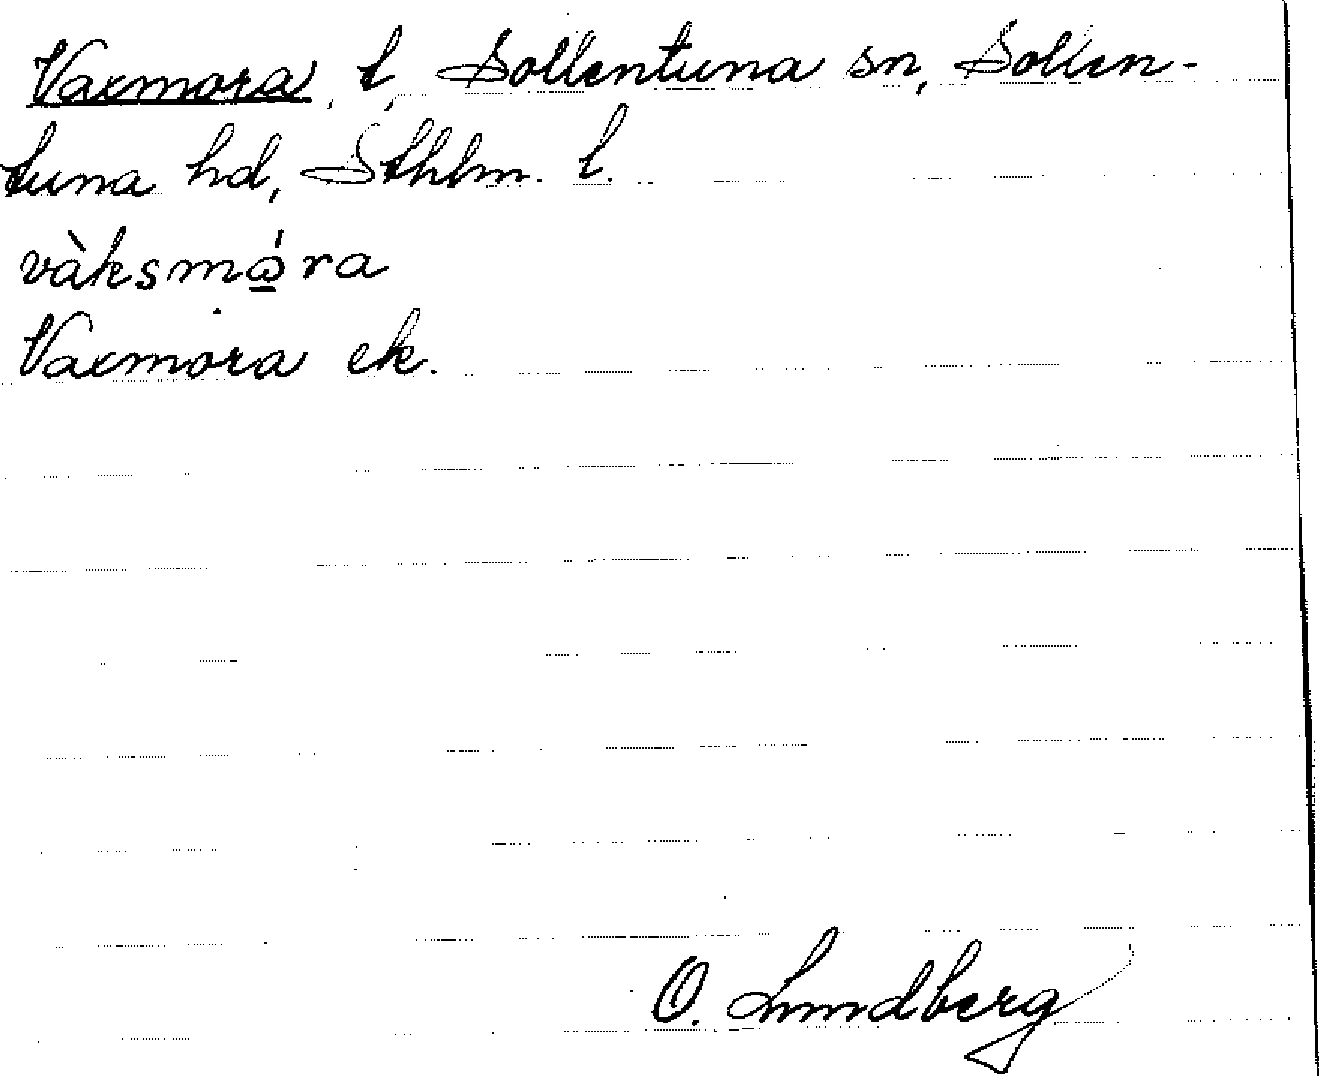 Vaxmora, t, Sollentuna sn, Sollen-
tuna hd, Sthlm. l.
vàksmώ̲ra
Vaxmora ek.
O. Lundberg